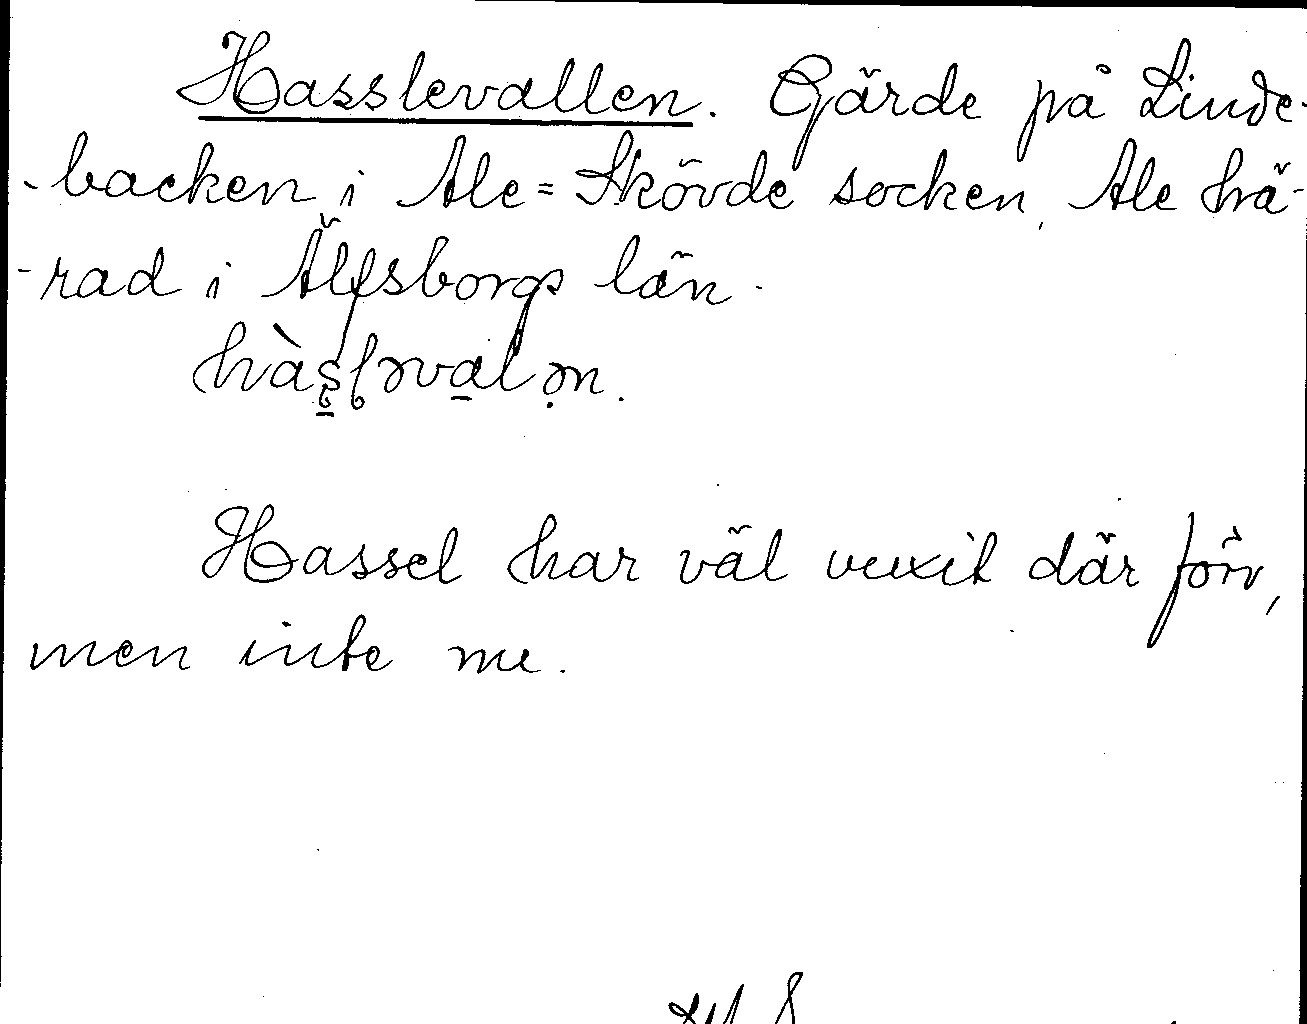 Hasslevallen. Gärde på Linde-
-backen i Ale=Skövde socken, Ale hä-
-rad i Älfsborgs län.
hàslǝvalǝn.
Hassel har väl vuxit där förr,
men inte nu.